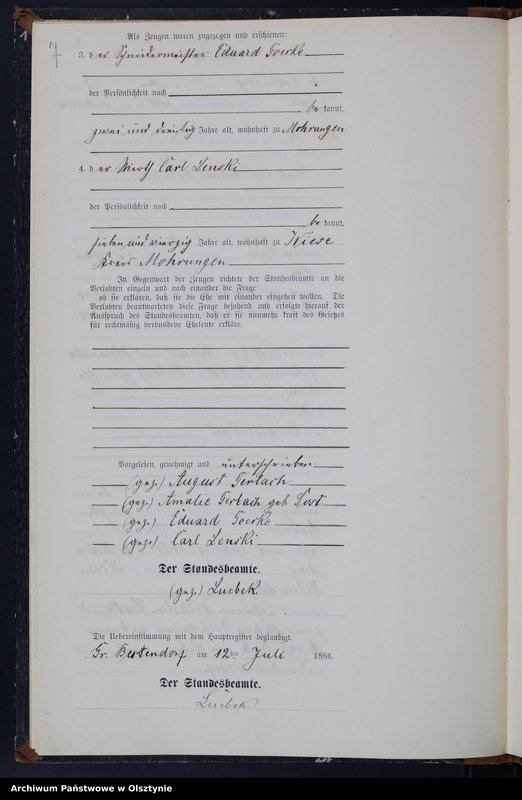 7
Als Zeugen waren zugezogen und erschienen:
3. d er Schneidermeister Eduard Goerke
der Persönlichkeit nach
be kannt,
zwei und dreißig Jahre alt, wohnhaft zu Mohrungen
4. d er Wirth Carl Lenski
der Persönlichkeit nach
be kannt,
sieben und vierzig Jahre alt, wohnhaft zu Wiese
Kreis Mohrungen
In Gegenwart der Zeugen richtete der Standesbeamte an die
Verlobten einzeln und nach einander die Frage:
ob sie erklären, daß sie die Ehe mit einander eingehen wollen. Die
Verlobten beantworteten diese Frage bejahend und erfolgte hierauf der
Ausspruch des Standesbeamten, daß er sie nunmehr kraft des Gesetzes
für rechtmäßig verbundene Eheleute erkläre.
Vorgelesen, genehmigt und unterschrieben:
(gez.) August Gerlach
(gez.) Amalie Gerlach geb.
(gez.) Eduard Goerke
(gez.) Carl Lenski
Der Standesbeamte.
(gez.) Luebek
Die Uebereinstimmung mit dem Hauptregister beglaubigt.
Gr. am 12ten Juli 1886.
Der Standesbeamte.
Luebek
Archiwum Państwowe w Olsztynie